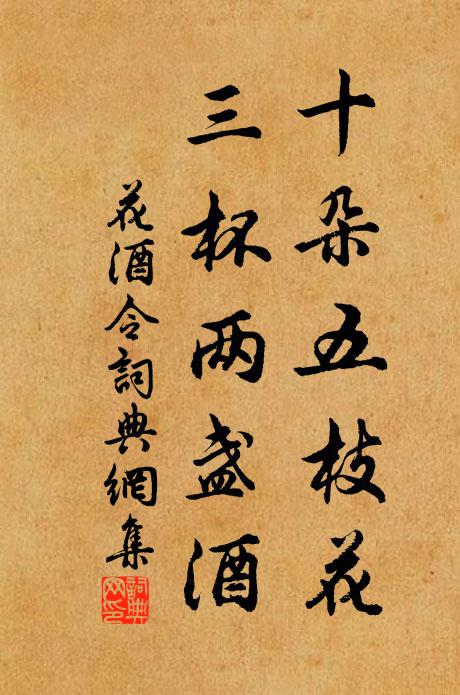 十朵五枝花
三杯两盏酒
花酒令詞典網集
詞典
网印